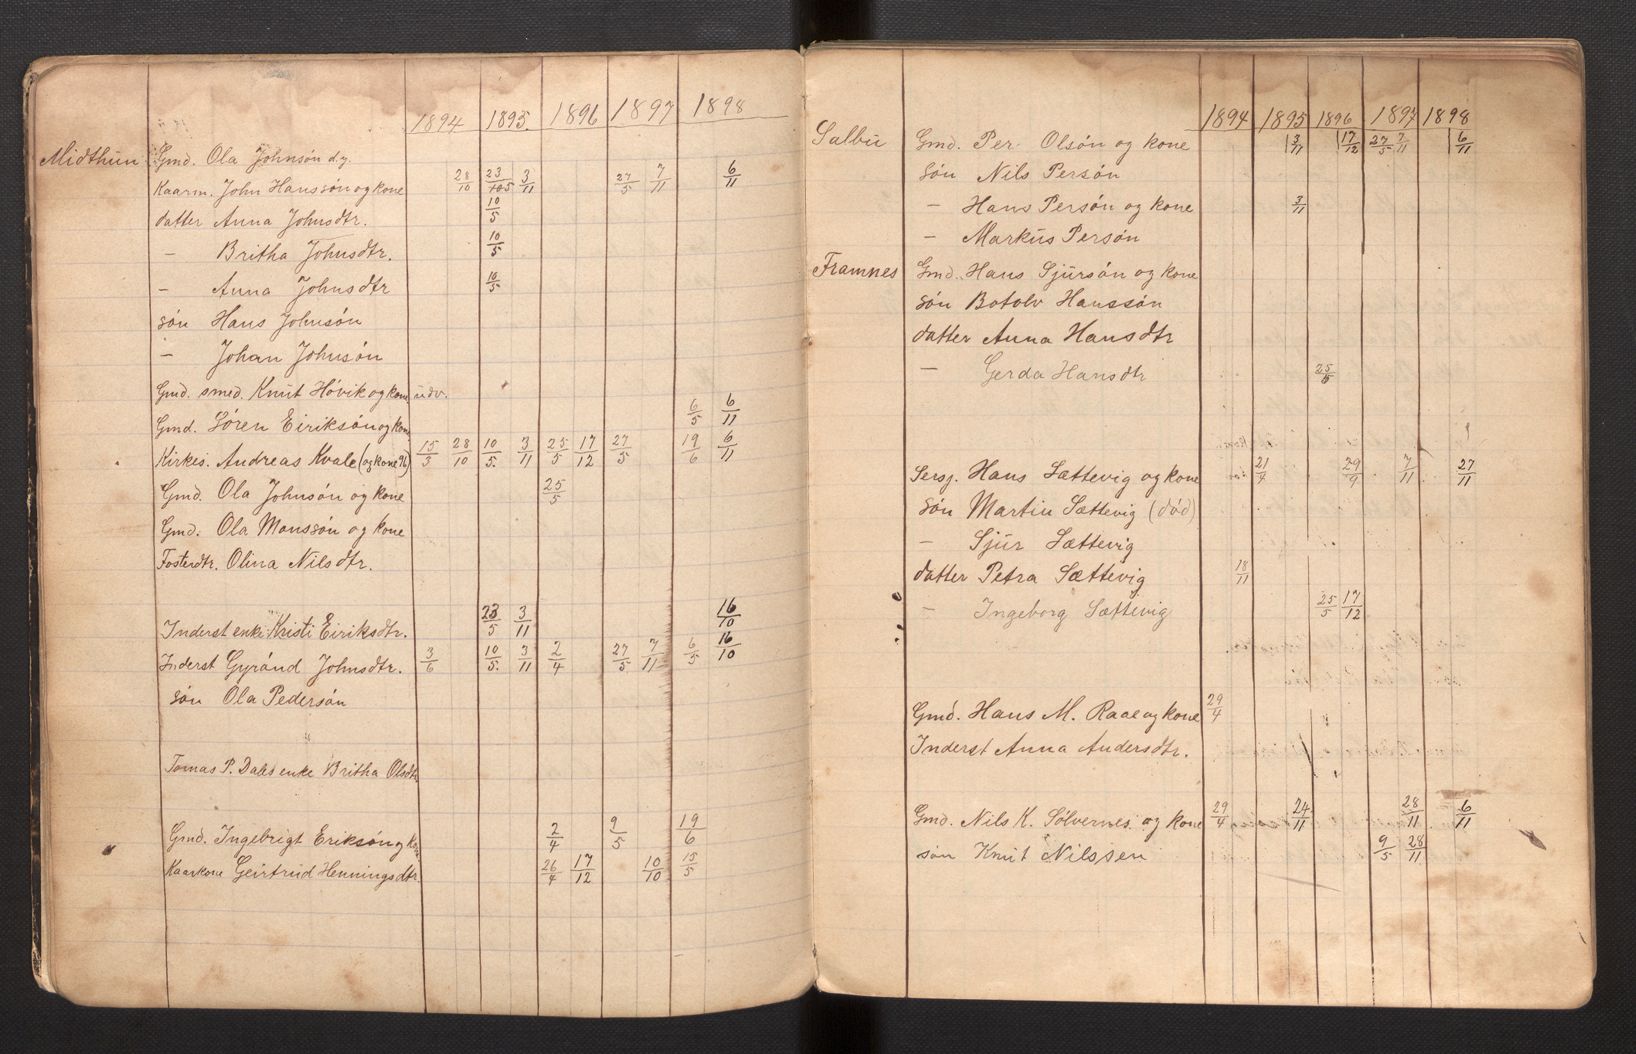 1894 1895. 1896 1897 1898
Midthun Gmd. Ola Johnsøn d.y.
Kaarm. John Hanssøn og kone 28/10 23/5 3/11 27/5 7/11 6/11
datter Anna Johnsdtr. 10/5
— Britha Johnsdtr. 10/5
— Anna Johnsdtr 10/5
søn Hans Johnsøn
— Johan Johnsøn
Gmd. smed. Knut Høvik og kone udv.
Gmd. Søren Eiriksøn og kone 6/5 6/11
Kirkes. Andreas Kvale (og kone 96) 15/3 28/10 10/5. 3/11 25/5 17/12 27/5 19/6 6/11
Gmd. Ola Johnsøn og kone 25/5
Gmd. Ola Monssøn og kone
Fosterdtr. Olina Nilsdtr.
Inderst enke Kristi Eiriksdtr. 23/5 3/11 16/10
Inderst Gyrónd Johnsdtr. 3/6 10/5. 3/11 2/4 27/5 7/11 6/5 16/10
søn Ola Pedersøn
Tomas P. Dales enke Britha Olsdtr
Gmd. Ingebrigt Eriksøn og kone 2/4 9/5 19/6
Kaarkone Geirtrud Henningsdtr. 26/4 17/12 10/10 15/5
1894 1895 1896 1897 1898
Salbu Gmd. Per Olsøn og kone 3/11 17/12 27/5 7/11 6/11
søn Nils Persøn
— Hans Persøn og kone 3/11
— Markus Persøn
Framnes Gmd. Hans Sjursøn og kone
søn Botolv Hanssøn
datter Anna Hansdtr
— Gerda Hansdtr 25/5
Sersj. Hans Sættevig og kone 21/4 29/9 7/11 27/11
søn Martin Sættevig (død)
— Sjur Sættevig
datter Petra Sættevig 18/11
— Ingeborg Sættevig 25/5 17/12
Gmd. Hans M. Raae og kone 29/4
Inderst Anna Andersdtr.
Gmd. Nils K. Sølvernes og kone 29/4 24/11 28/11 6/11
søn Knut Nilssen 9/5 28/11